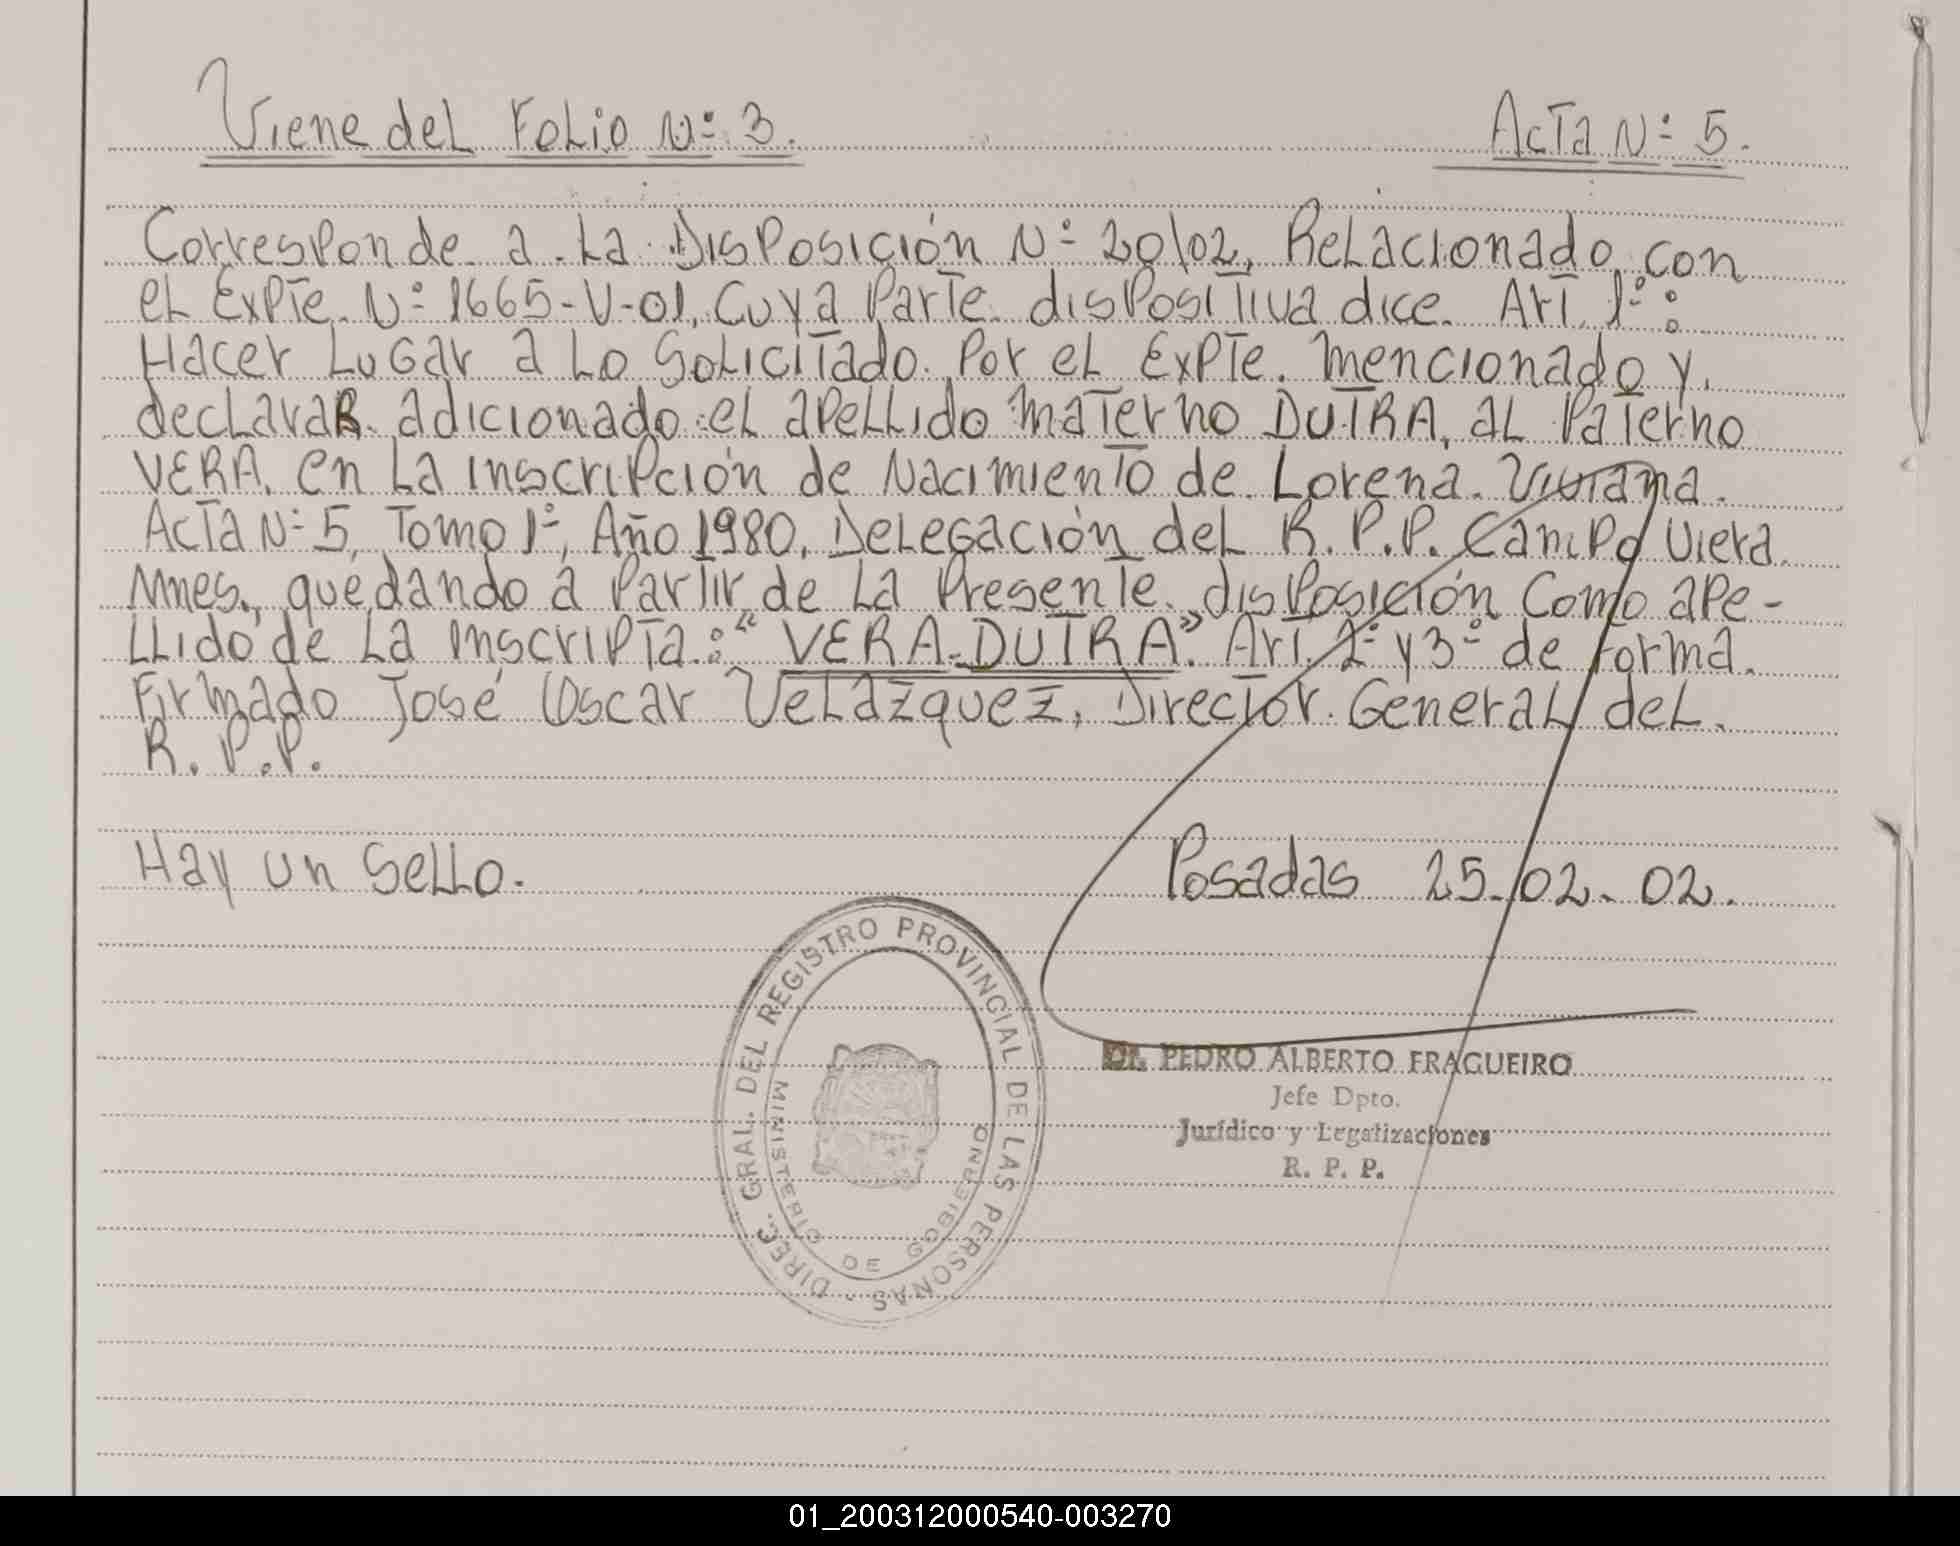 Viene del Folio Nº 3. Acta Nº 5.
Corresponde a la Disposición Nº 20/02, Relacionado con
el Expte. Nº 1665-V-01, cuya parte dispositiva dice. Art. 1º:
Hacer lugar a lo solicitado por el Expte. mencionado y,
declarar adicionado el apellido materno DUTRA, al paterno
VERA, en la inscripción de Nacimiento de Lorena Viviana.
Acta Nº 5, Tomo 1º, Año 1980, Delegación del R.P.P. Campo Viera
Mnes., quedando a partir de la presente disposición como ape-
llido de la inscripta: "VERA-DUTRA". Art. 2º y 3º de forma.
Firmado José Oscar Velázquez, Director General del
R.P.P.
Hay un sello. Posadas 25-02-02.
DIREC. GRAL. DEL REGISTRO PROVINCIAL DE LAS PERSONAS -
MINISTERIO DE GOBIERNO
Dr. PEDRO ALBERTO FRAGUEIRO
Jefe Dpto.
Jurídico y Legalizaciones
R. P. P.
01_200312000540-003270